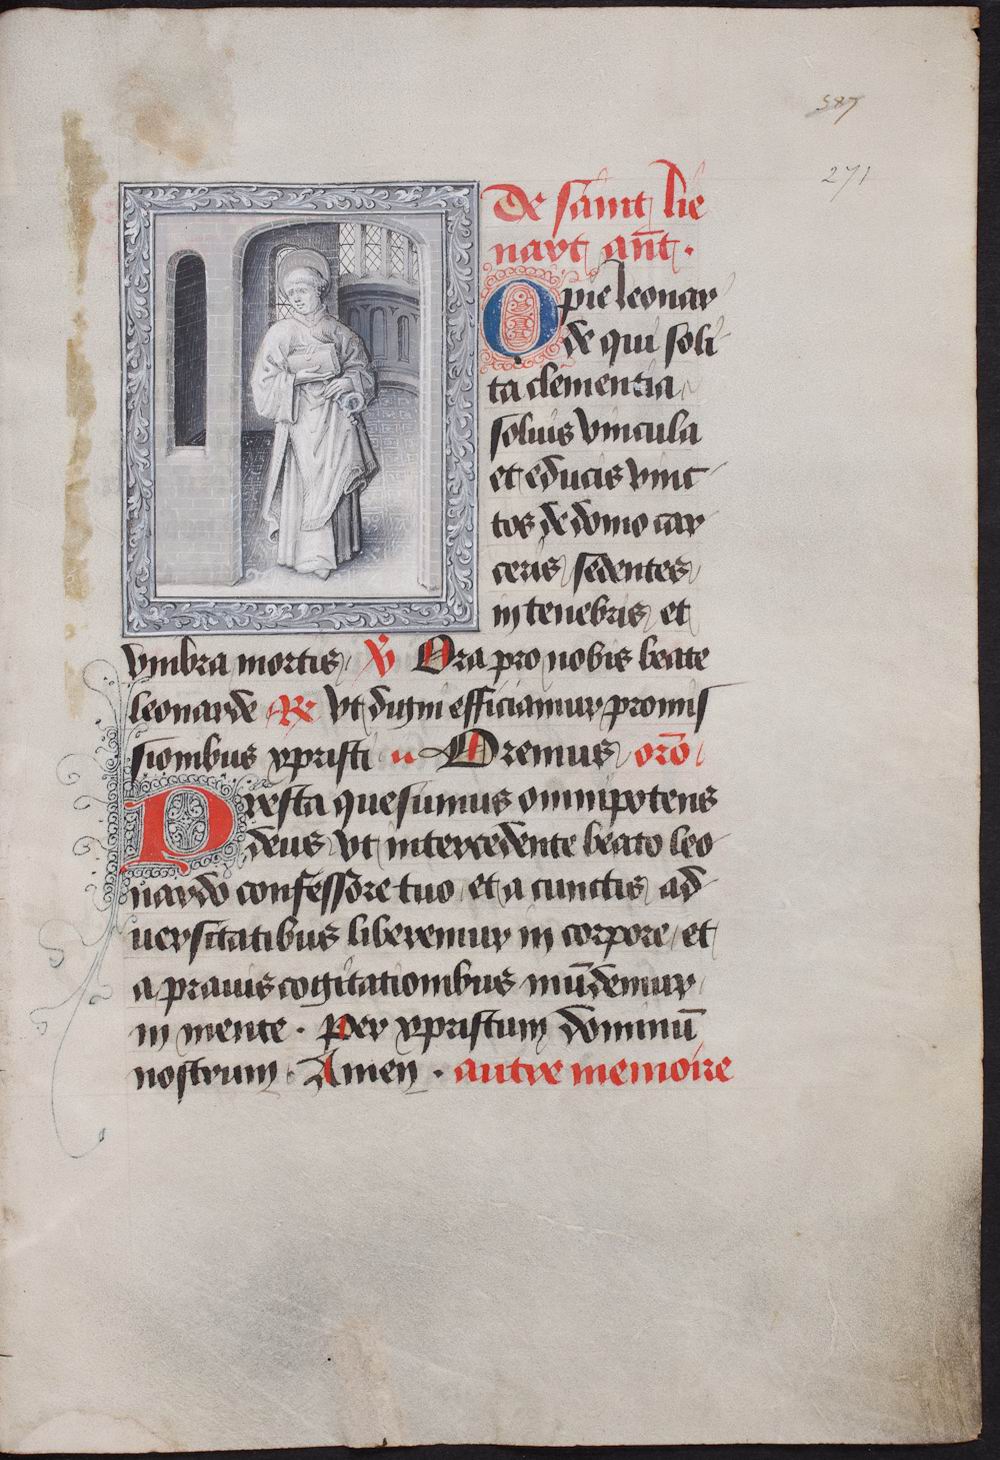 587
271
De saint lie
nart an̅t.
O pie leonar
de qui soli
ta clementia
soluis vincula
et educis vinc
tos de domo car
ceris sedentes
in tenebris et
vmbra mortis ℣ Ora pro nobis beate
leonarde ℟ Vt digni efficiamur promis
sionibus xpristi Oremus oro̅
Presta quesumus omnipotens
deus vt intercedente beato leo
nardo confessore tuo et a cunctis ad
uersitatibus liberemur in corpore et
a prauis cogitationibus mu̅demur
in mente. Per xpristum dominu̅
nostrum. Amen. autre memoire